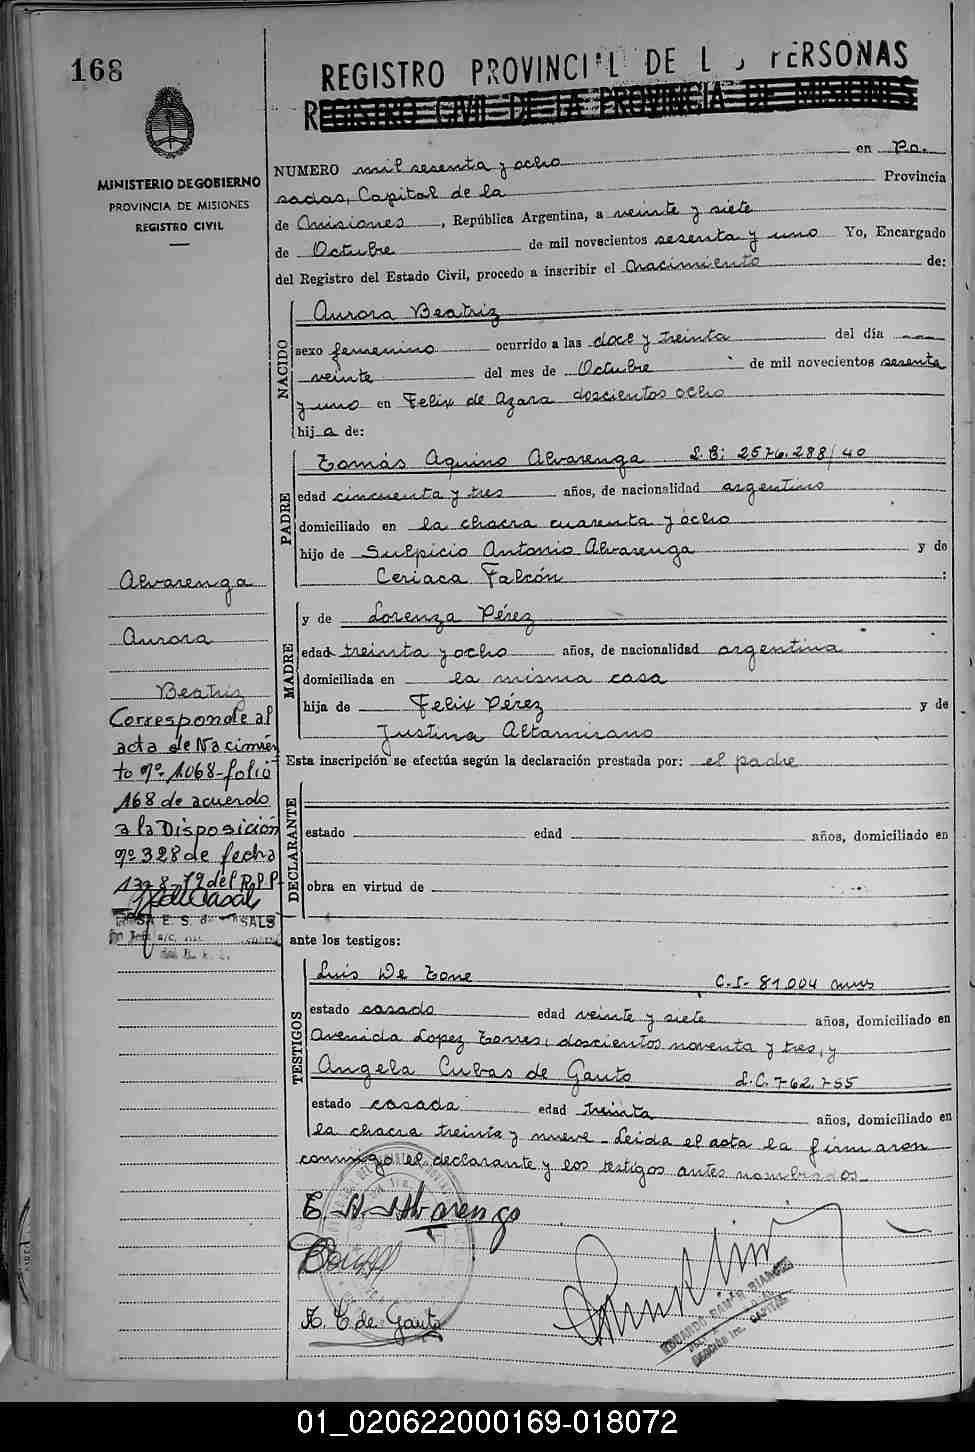 168
REGISTRO PROVINCIAL DE L S PERSONAS
REGISTRO CIVIL DE LA PROVINCIA DE MISIONES
MINISTERIO DE GOBIERNO
PROVINCIA DE MISIONES
REGISTRO CIVIL
NUMERO mil sesenta y ocho en Po-
sadas, Capital de la Provincia
de Misiones, República Argentina, a veinte y siete
de Octubre de mil novecientos sesenta y uno Yo, Encargado
del Registro del Estado Civil, procedo a inscribir el Nacimiento de:
NACIDO
Aurora Beatriz
sexo femenino ocurrido a las doce y treinta del día
veinte del mes de Octubre de mil novecientos sesenta
y uno en Felix de Azara doscientos ocho
hija de:
PADRE
Tomás Aquino Alvarenga L.E: 2576.288/40
edad cincuenta y tres años, de nacionalidad argentino
domiciliado en la chacra cuarenta y ocho
hijo de Sulpicio Antonio Alvarenga y de
Ceriaca Falcón :
MADRE
y de Lorenza Pérez
edad treinta y ocho años, de nacionalidad argentina
domiciliada en la misma casa
hija de Felix Pérez y de
Justina Altamirano
Esta inscripción se efectúa según la declaración prestada por: el padre
Alvarenga
Aurora
Beatriz
Corresponde al
acta de Nacimien
to nº 1068-folio
168 de acuerdo
a la Disposición
nº 328 de fecha
13-8-79 del R.P.P.
DECLARANTE
estado edad años, domiciliado en
obra en virtud de
ante los testigos:
TESTIGOS
Luis De Tone C.I- 81.004 mnes
estado casado edad veinte y siete años, domiciliado en
Avenida Lopez Torres, doscientos noventa y tres, y
Angela Cubas de Gauto L.C. 762.755
estado casada edad treinta años, domiciliado en
la chacra treinta y nueve - Leida el acta la firmaron
conmigo el declarante y los testigos antes nombrados-
T. A. Alvarenga
A. C de Gauto
01_020622000169-018072